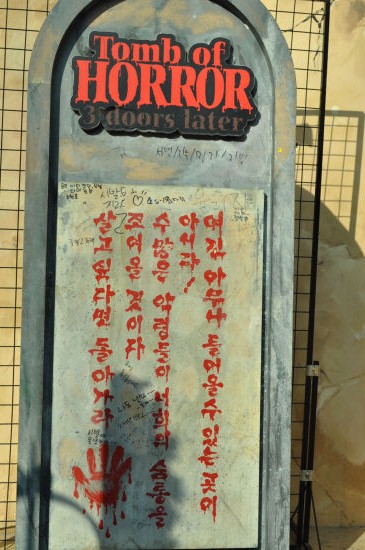 Tomb of
HORROR
3 doors later
여긴 아무나 들어올수있는곳이
아니다!
수많은 악령들이 너희의 숨통을
조여올 것이다
살고싶다면 돌아가라